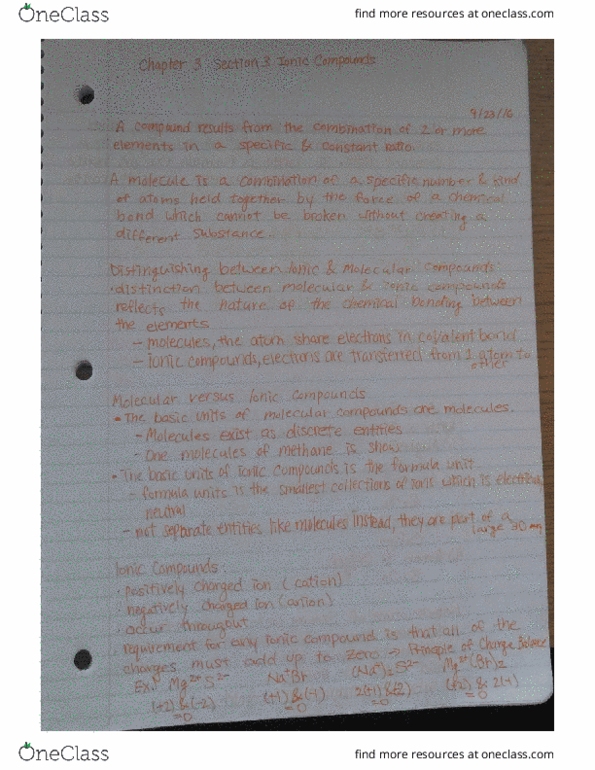 OneClass
find more resources at oneclass.com
Chapter 3 Section 3 Ionic Compounds
9/23/16
A compound results from the combination of 2 or more
elements in a specific & constant ratio.
A molecule is a combination of a specific number & kind
of atoms held together by the force of a chemical
bond which cannot be broken without creating a
different substance.
Distinguishing between Ionic & Molecular compounds
• distinction between molecular & Ionic compounds
reflects the nature of the chemical bonding between
the elements
- molecules, the atom share electrons in covalent bond
- ionic compounds, electrons are transferred from 1 atom to
other
Molecular versus Ionic Compounds
• The basic units of molecular compounds are molecules.
- Molecules exist as discrete entities
- One molecules of methane is show
• The basic units of ionic compounds is the formula unit
- formula units is the smallest collections of ions which is
neutral
- not separate entities like molecules instead, they are part of a
large 3D
Ionic Compounds:
• positively charged ion (cation)
• negatively charged ion (anion)
• occur throughout
• requirement for any ionic compound is that all of the
charges must add up to zero → Principle of Charge Balance
Ex. Mg²⁺S²⁻ Na⁺Br⁻ (Na⁺)₂S²⁻ Mg²⁺(Br⁻)₂
(+2) & (-2) (+1) & (-1) 2(+1) & (-2) (+2) & 2(-1)
=0 =0 =0 =0
OneClass
find more resources at oneclass.com